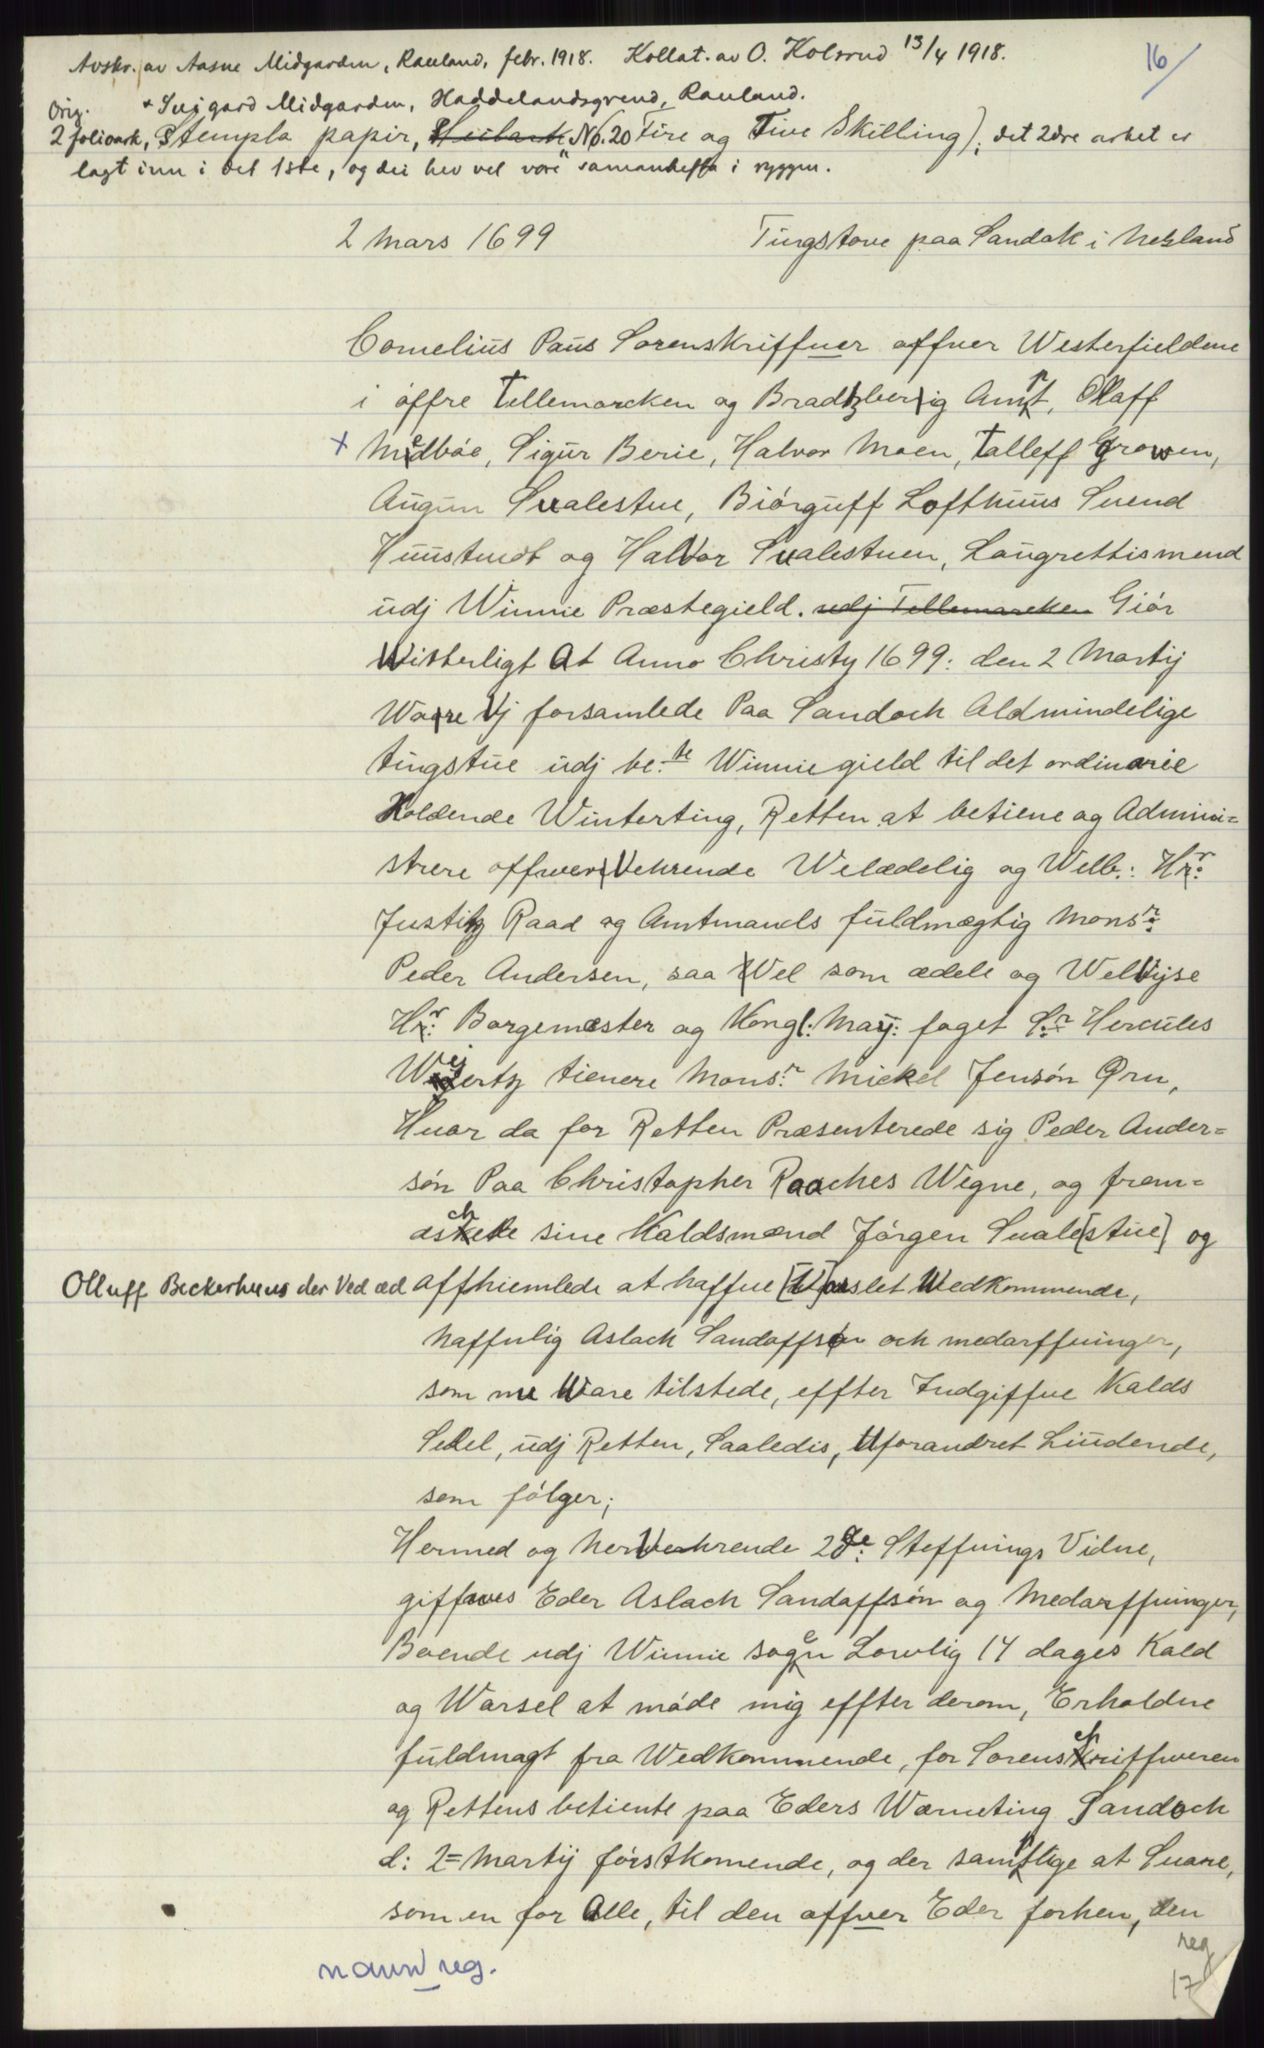 Avskr. av Aasne Midgarden, Rauland, febr. 1918. Kollat. av O. Kolsrud 13/4 1918.
16/
Orig. * Inigard Midgarden, Haddelandsgrend, Rauland.
2 folioark, Stempla papir, No. 20 Fire og Tive Skilling); det 2dre arket er
lagt inn i det 1ste, og dei hev vel vore samanhefta i ryggen.
2 mars 1699 Tingstove paa Sandok i Netland
Cornelius Paus Sorenskriffuer offuer Westerfieldene
i øffre Tellemarcken og Bradtzberig Ampt, Olaff
x Medbøe, Sigur Berie, Halvor Moen, Talleff Growen,
Augun Sualestue, Biørguff Lofthuus Suend
Huustuedt og Halvor Sualestuen, Laugrettismend
udj Winnie Præstegield. udj Tellemarcken Giør
Witterligt At Anno Christy 1699: den 2 Martij
Waare Vj forsamlede Paa Sandoch Aldmindelige
tingstue udj be:te Winnie gield til det ordinarie
Holdende Winterting, Retten at betiene og Admini=
strere offwer Vehrende Welædelig og Welb: Hr:
Justitz Raad og Amtmands fuldmægtig Monsr:
Peder Andersen, saa Wel som ædele og Welvijse
Hr: Borgemester og Kongl: May: foget Sr: Hercules
Weyertz tienere Monsr: Mickel Jensøn Ørn,
Huor da for Retten Præsenterede sig Peder Ander=
søn Paa Christopher Raaches Wegne, og frem=
æschete sine Kaldsmænd Jørgen Suale[stue] og
Olluff Beckerhuus der Ved æd affhiemlede at haffue [W]arslet Wedkommende,
haffnlig Aslach Sandaffsøn och medarffuinger,
som nu Ware tilstede, effter Indgiffue Kalds
Sedel, udj Retten, Saaledis, Uforandret Liudende,
som følger;
Hermed og herVehrende 2de: Steffnings Vidne,
giffues Eder Aslach Sandaffsøn og Medarffuinger,
Boende udj Winnie sogen Lowlig 14 dages Kald
og Warsel at møde mig effter derom, Erholdne
fuldmagt fra Wedkommende, for Sorenschriffweren
og Rettens betiente paa Eders Warneting Sandoch
d: 2= Martij førstkomende, og der samptlige at Suare,
som en for Alle, til den offver Eder forhen, den
navnreg.
reg
17